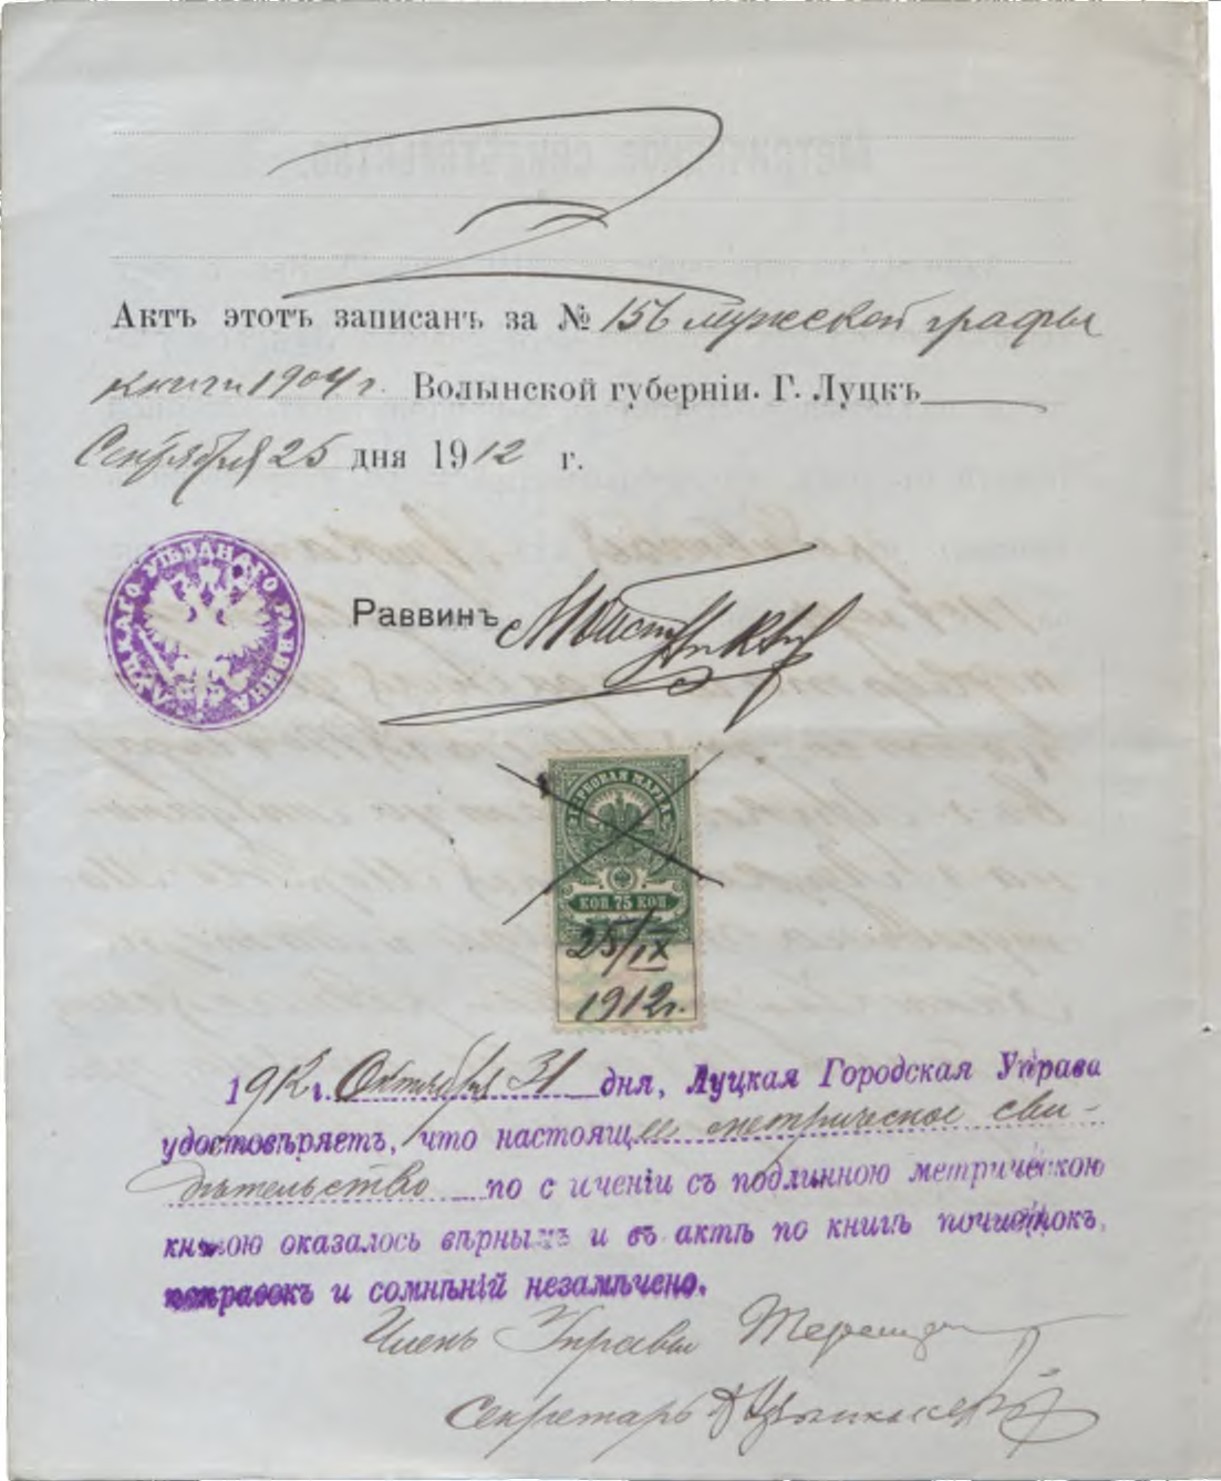 Актъ этотъ записанъ за № 156 мужской графы
книги 1904 г. Волынской губерніи. Г. Луцкъ
Сентября 25 дня 1912 г.
ЛУЦКАГО УѢЗДНАГО РАВВИНА
Раввинъ
ГЕРБОВАЯ МАРКА
КОП. 75 КОП.
25/IX
1912 г.
1912 г. Октября 31 дня, Луцкая Городская Управа
удостовѣряетъ, что настоящее метрическое сви-
дѣтельство по с иченіи съ подлинною метрическою
книгою оказалось вѣрнымъ и въ актѣ по книгѣ почистокъ,
поправокъ и сомнѣній незамѣчено.
Членъ Управы
Секретарь